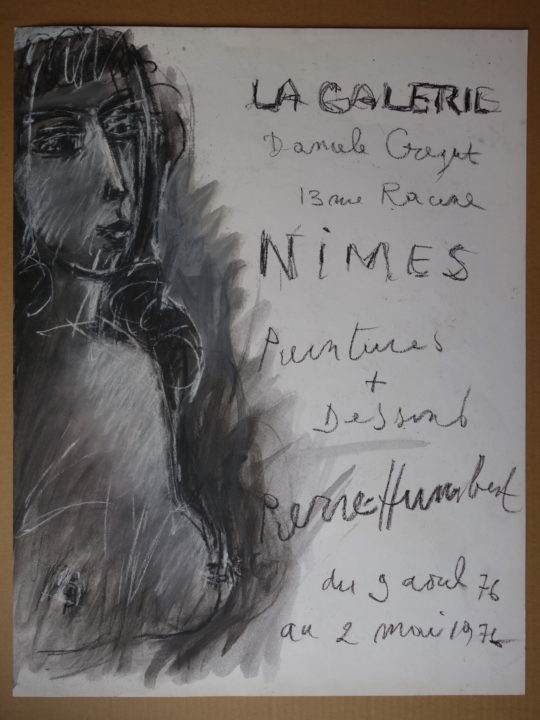 LA GALERIE
Daniele Cregut
13 rue Racine
NiMES
Peintures
+
Dessins
Pierre Humbert
du 9 aout 76
au 2 mai 1976